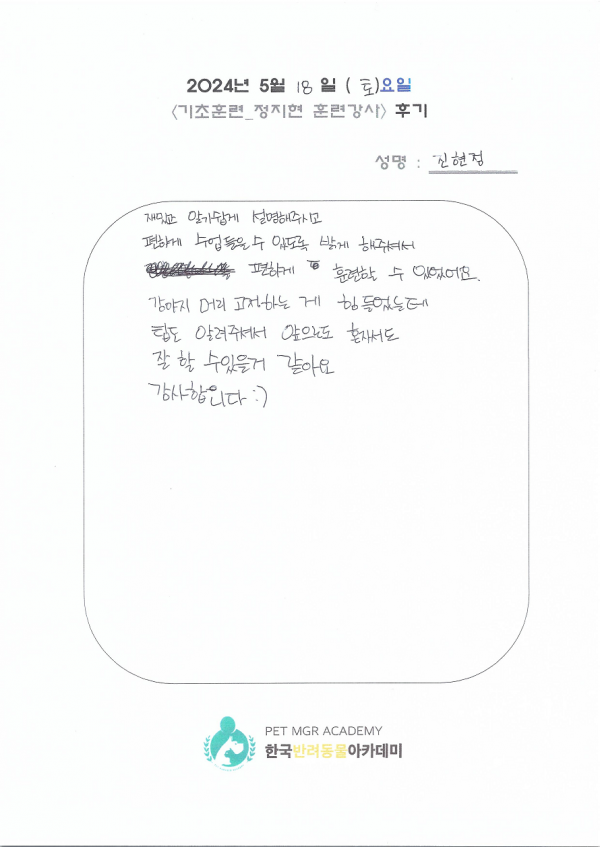 2024년 5월 18 일 ( 토)요일
<기초훈련_정지현 훈련강사> 후기
성명 : 신현정
재밌고 알기쉽게 설명해주시고
편하게 수업들을 수 있도록 밝게 해주셔서
편하게 훈련할 수 있었어요.
강아지 머리 고정하는 게 힘들었는데
팁도 알려주셔서 앞으로도 혼자서도
잘 할 수있을거 같아요
감사합니다 :)
PET MGR ACADEMY
한국반려동물아카데미